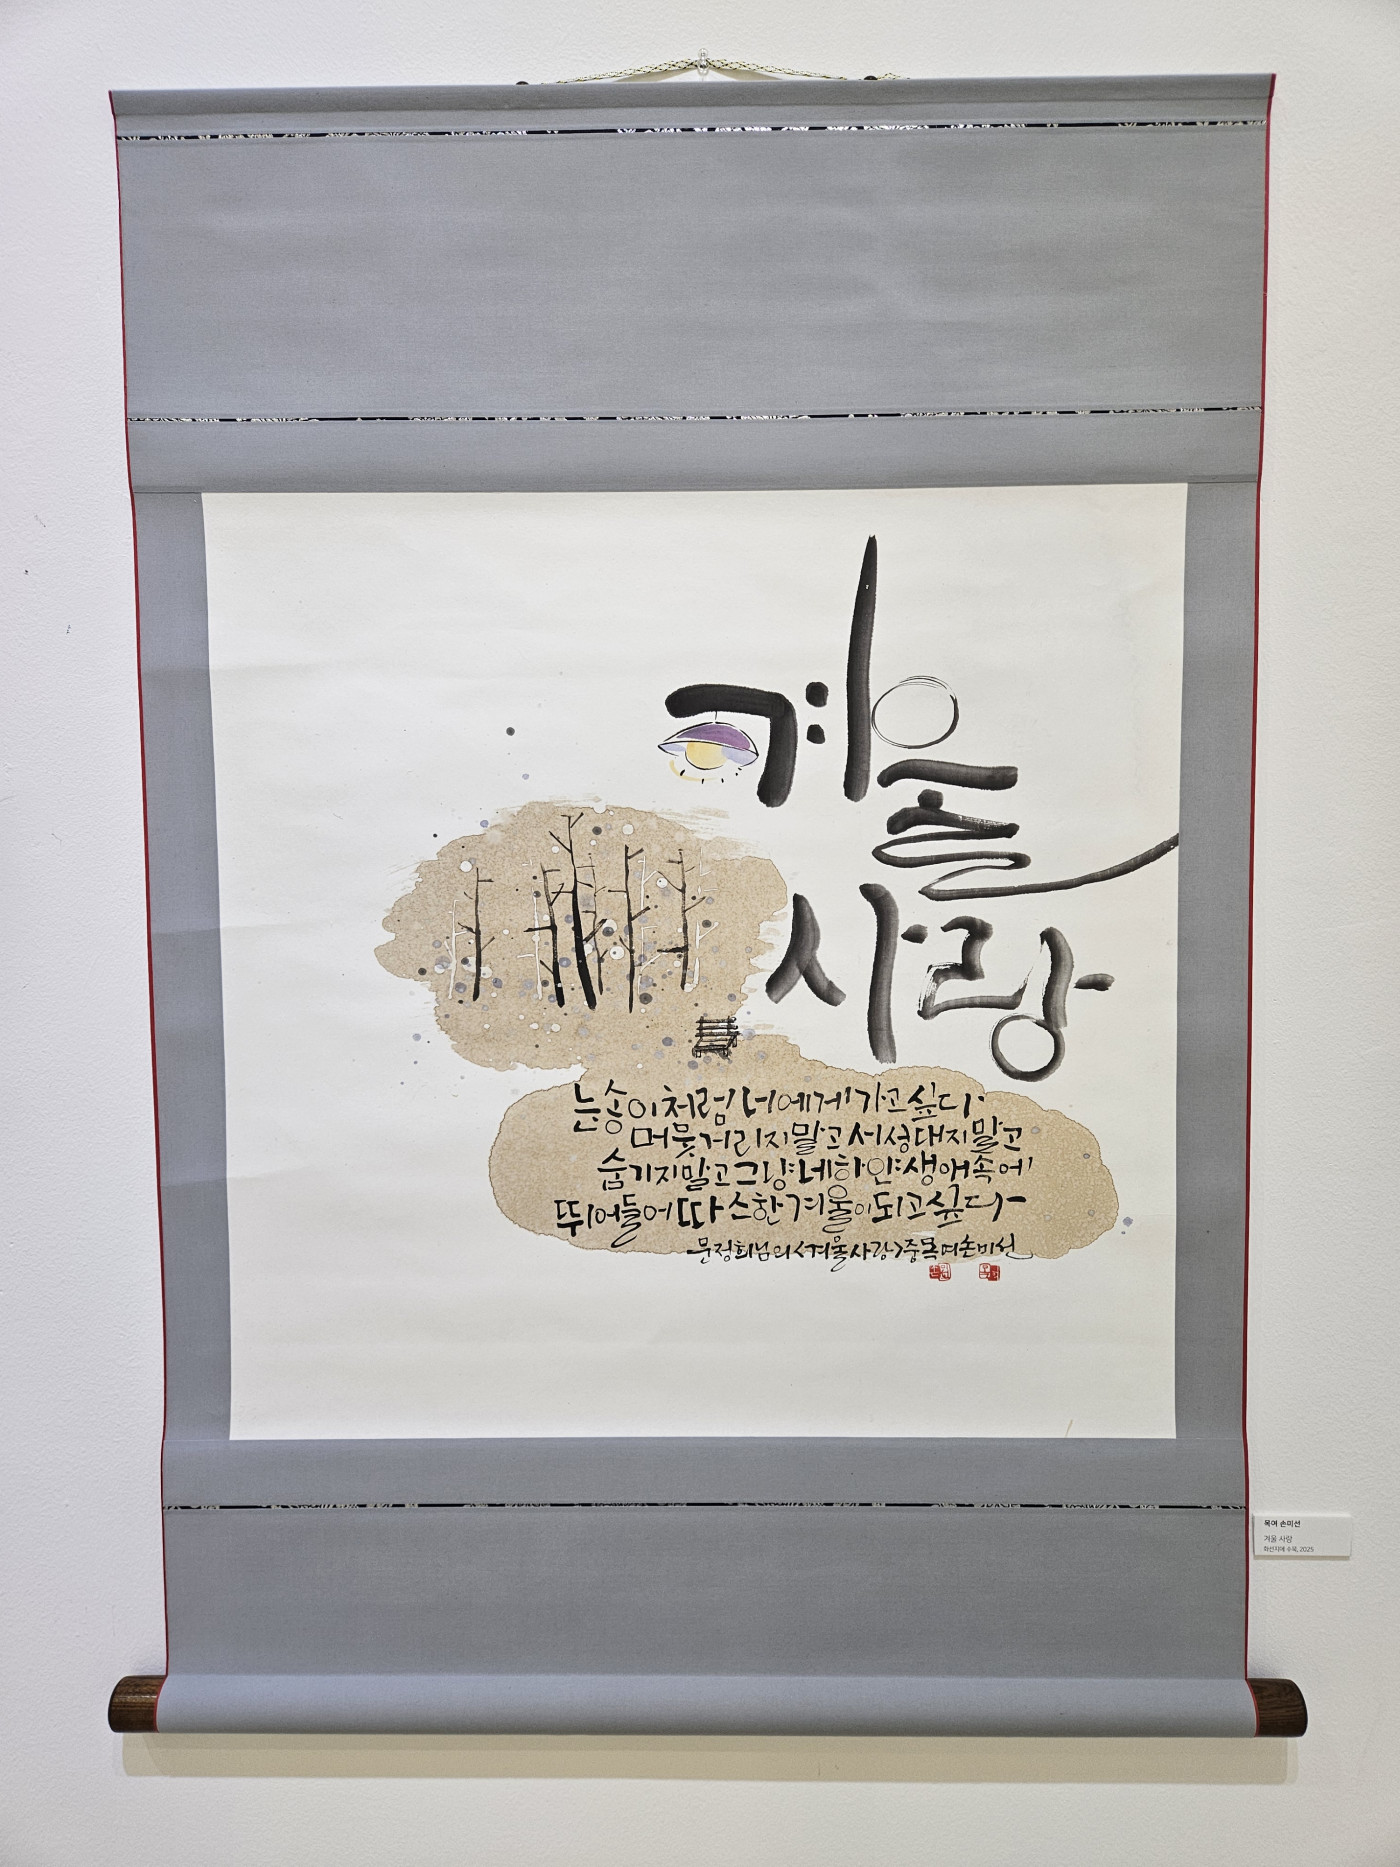 겨울
사랑
눈송이처럼 너에게 가고 싶다
머뭇거리지 말고 서성대지 말고
숨기지 말고 그냥 네 하얀 생애 속에
뛰어들어 따스한 겨울이 되고 싶다
문정희님의 <겨울사랑> 중 목여 손미선
목여 손미선
겨울 사랑
화선지에 수묵, 2025